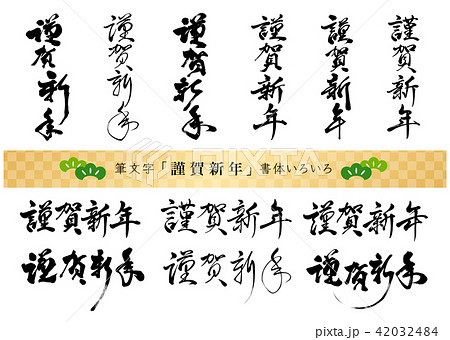 謹賀新年
謹賀新年
謹賀新年
謹賀新年
謹賀新年
謹賀新年
筆文字「謹賀新年」書体いろいろ
謹賀新年 謹賀新年 謹賀新年
謹賀新年 謹賀新年 謹賀新年
pixta.jp - 42032484